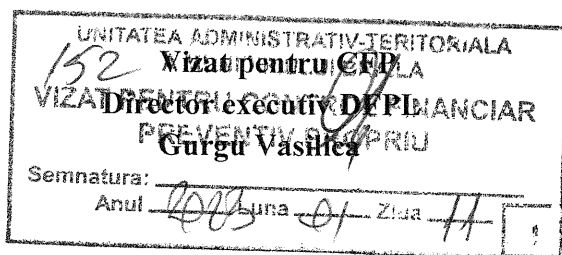 UNITATEA ADMINISTRATIV-TERITORIALA
152 Vizat pentru CFP
VIZAT PENTRU CONTROL FINANCIAR
Director executiv DFPL
PREVENTIV PROPRIU
Gurgu Vasilica
Semnatura:
Anul 2023 Luna 01 Ziua 11